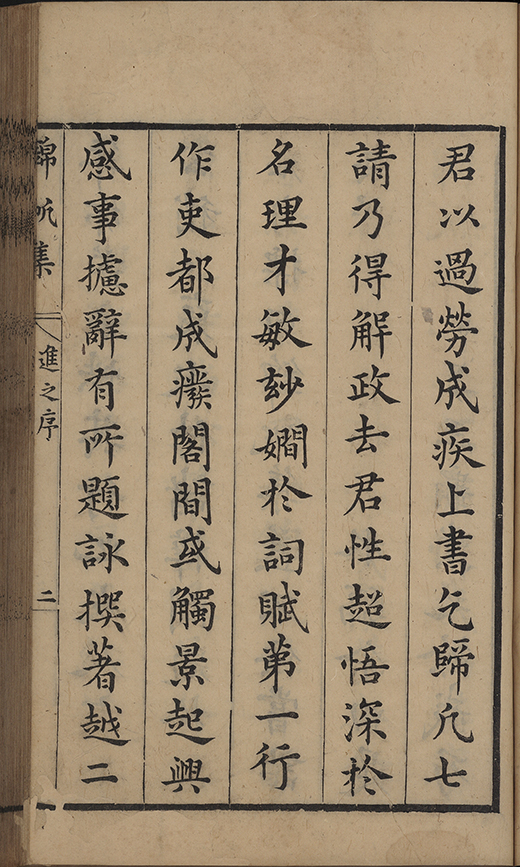 君以過勞成疾上書乞歸凡七
請乃得解政去君性超悟深於
名理才敏玅嫺於詞賦第一行
作吏都成癈閣間或觸景起興
感事攄辭有所題詠撰著越二
錦帆集
進之序
二